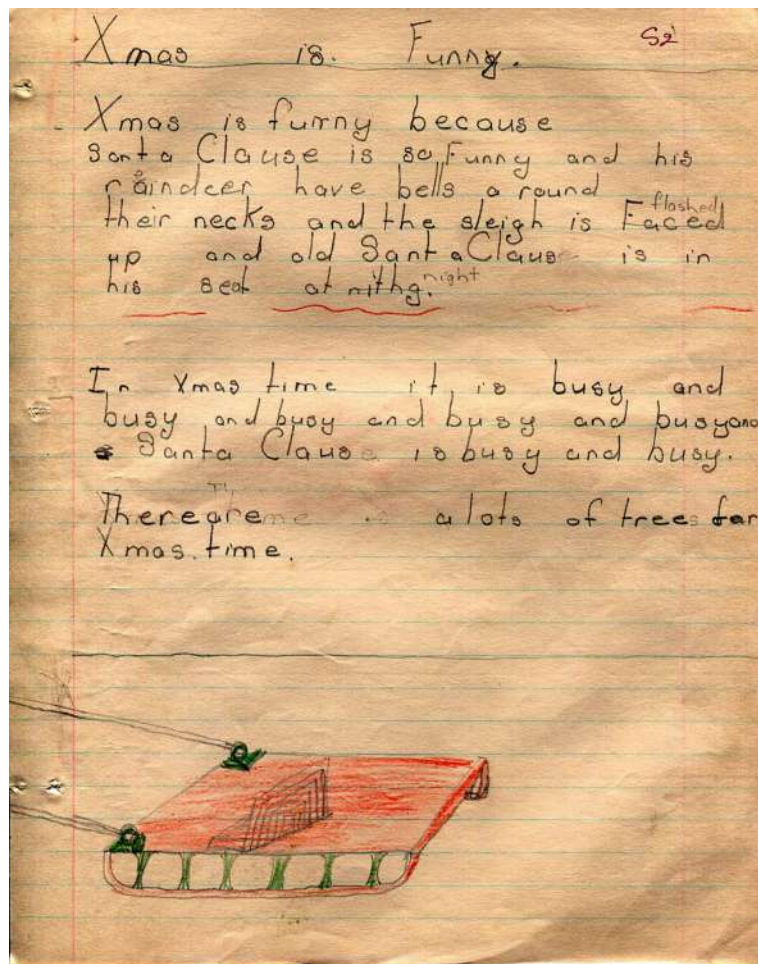 S2
Xmas is. Funny.
Xmas is funny because
Santa Clause is so Funny and his
raindeer have bells a round
flashed
their necks and the sleigh is Faced
up and old Santa Clause is in
his seat at nithg. night
In Xmas time it is busy and
busy and busy and busy and busy and
Santa Clause is busy and busy.
There are a lots of trees for
Xmas. time.